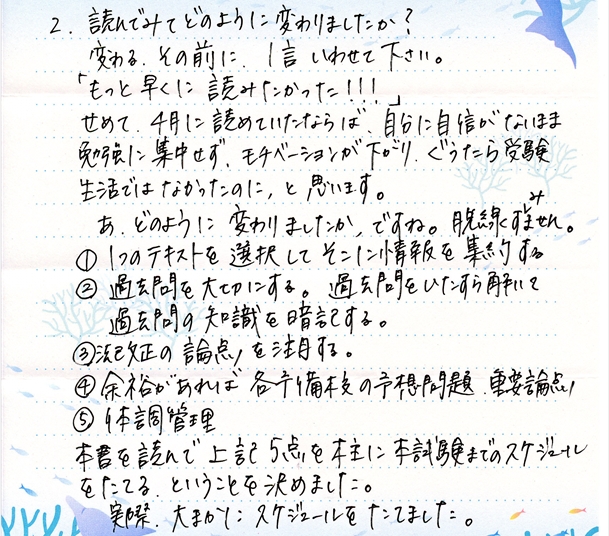 2. 読んでみてどのように変わりましたか?
変わる、その前に、1言いわせて下さい。
「もっと早くに読みたかった!!!」
せめて、4月に読めていたならば、自分に自信がないまま
勉強に集中せず、モチベーションが下がり、ぐうたら受験
生活ではなかったのに、と思います。
あ、どのように変わりましたか、ですね。脱線すみません。
① 1つのテキストを選択してそこに情報を集約する
② 過去問を大切にする。過去問をひたすら解いて
過去問の知識を暗記する。
③ 法改正の論点を注目する。
④ 余裕があれば各予備校の予想問題、重要論点
⑤ 体調管理
本書を読んで上記5点を柱に本試験までのスケジュール
をたてる、ということを決めました。
実際、大まかにスケジュールをたてました。